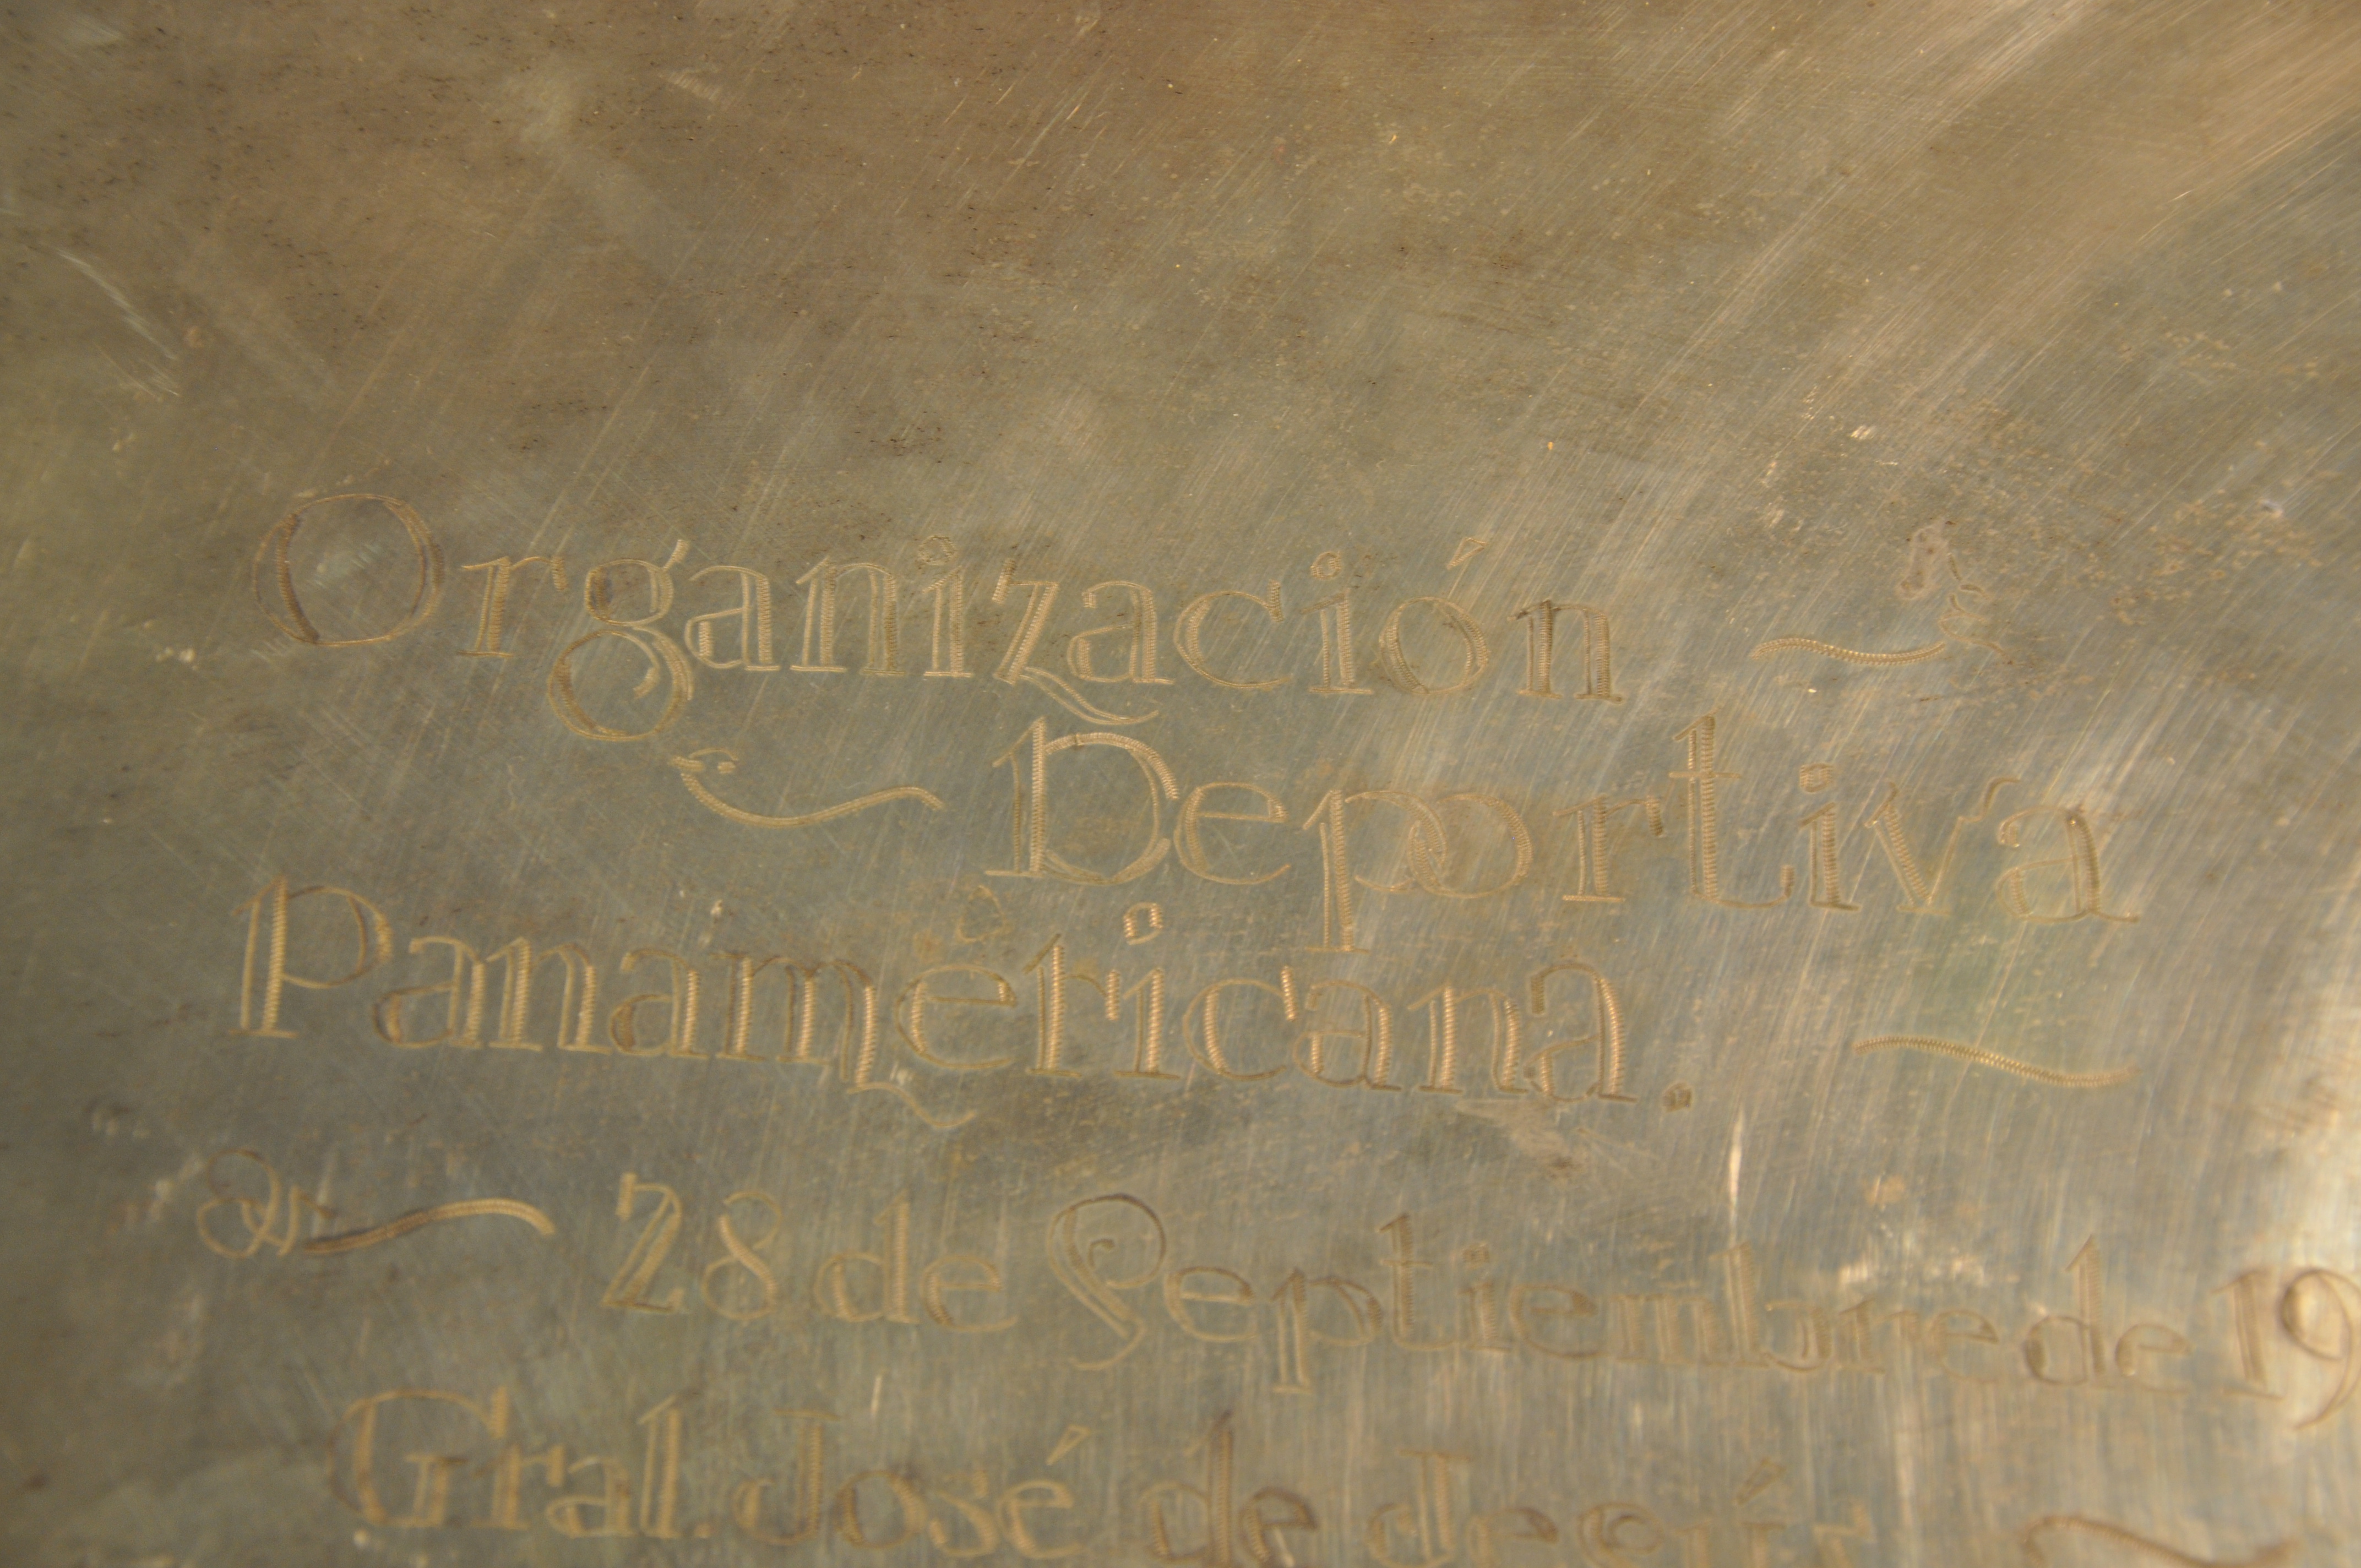 Organización
Deportiva
Panamericana.
28 de Septiembre de 19
Gral. José de Jesús